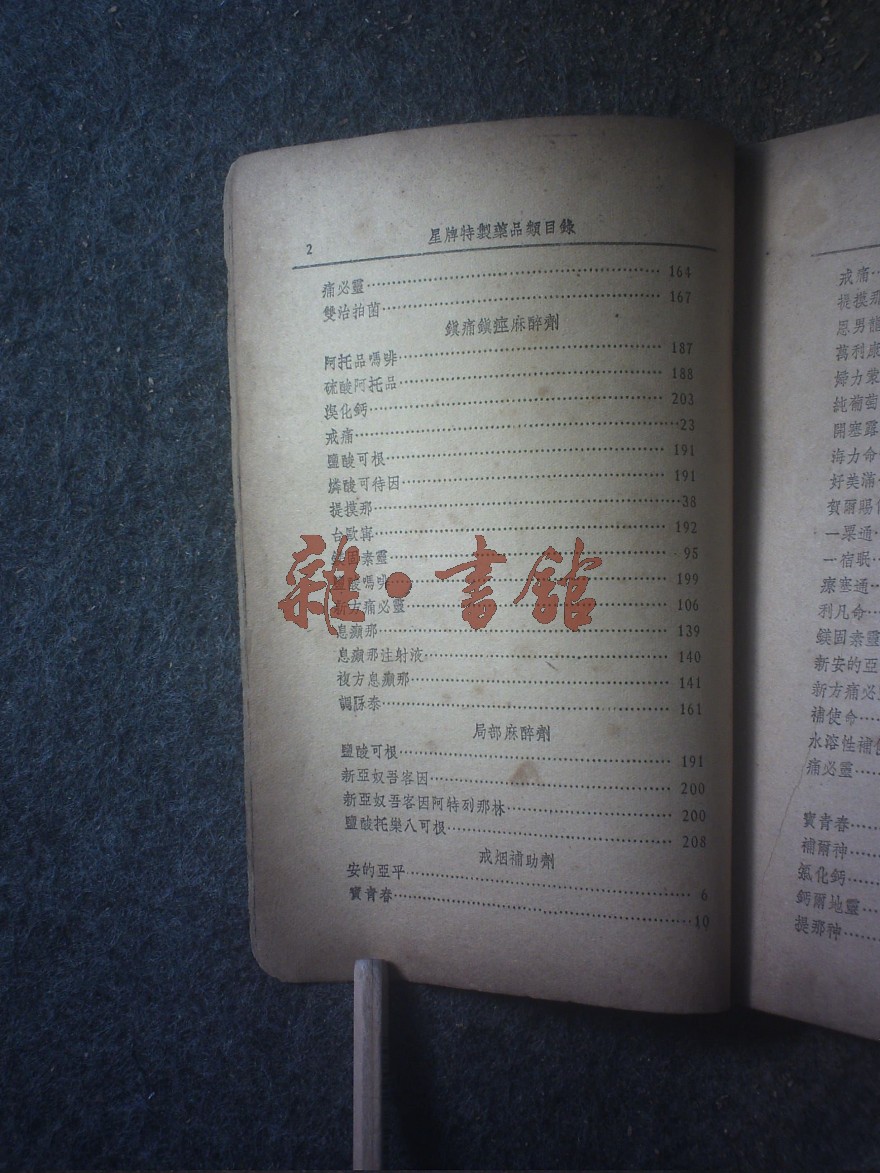 2 星牌特製藥品類目錄
痛必靈 164
雙治拍菌 167
鎭痛鎭痙麻醉劑
阿托品嗎啡 187
硫酸阿托品 188
溴化鈣 203
戒痛 23
鹽酸可根 191
燐酸可待因 191
提摸那 38
台歐甯 192
鎂固素靈 95
鹽酸嗎啡 199
新方痛必靈 106
息癲那 139
息癲那注射液 140
複方息癲那 141
調脉泰 161
局部麻醉劑
鹽酸可根 191
新亞奴吾客因 200
新亞奴吾客因阿特列那林 200
鹽酸托樂八可根 208
戒烟補助劑
安的亞平 6
寳青春 10
雜·書館
戒痛
提摸那
恩男龍
舊利康
婦力
純葡萄
開塞露
海力命
好美滿
賀爾賜
一栗通
一宿眠
療塞通
利凡命
鎂固素靈
新安的亞
新方痛必
補使命
水溶性補使
痛必靈
寳青春
補爾神
氯化鈣
鈣爾地靈
提那神